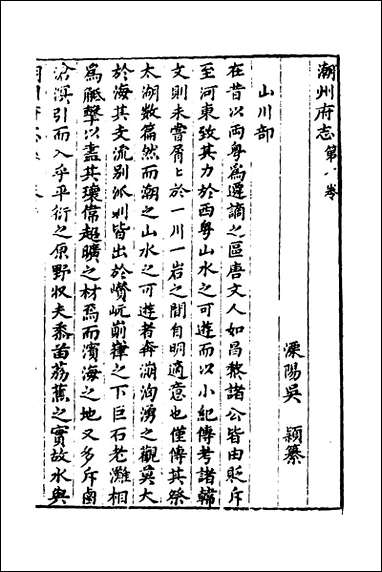 潮州府志第八卷
溧陽吳 穎纂
山川部
在昔以两粤為遷謫之區唐文人如昌黎諸公皆由貶斥
至河東致其力於西粤山水之可遊而以小紀傳考諸韓
文則未嘗屑屑於一川一岩之間自明適意也僅傳其祭
太湖數篇然而潮之山水之可遊者奔崩洶湧之觀莫大
於海其支流別派則皆出於巑岏巀嶭之下巨石老灘相
為觝擊以盡其瓌偉超曠之材焉而濱海之地又多斥鹵
滄溟引而入乎平衍之原野収夫黍苗荔蕉之實故水與